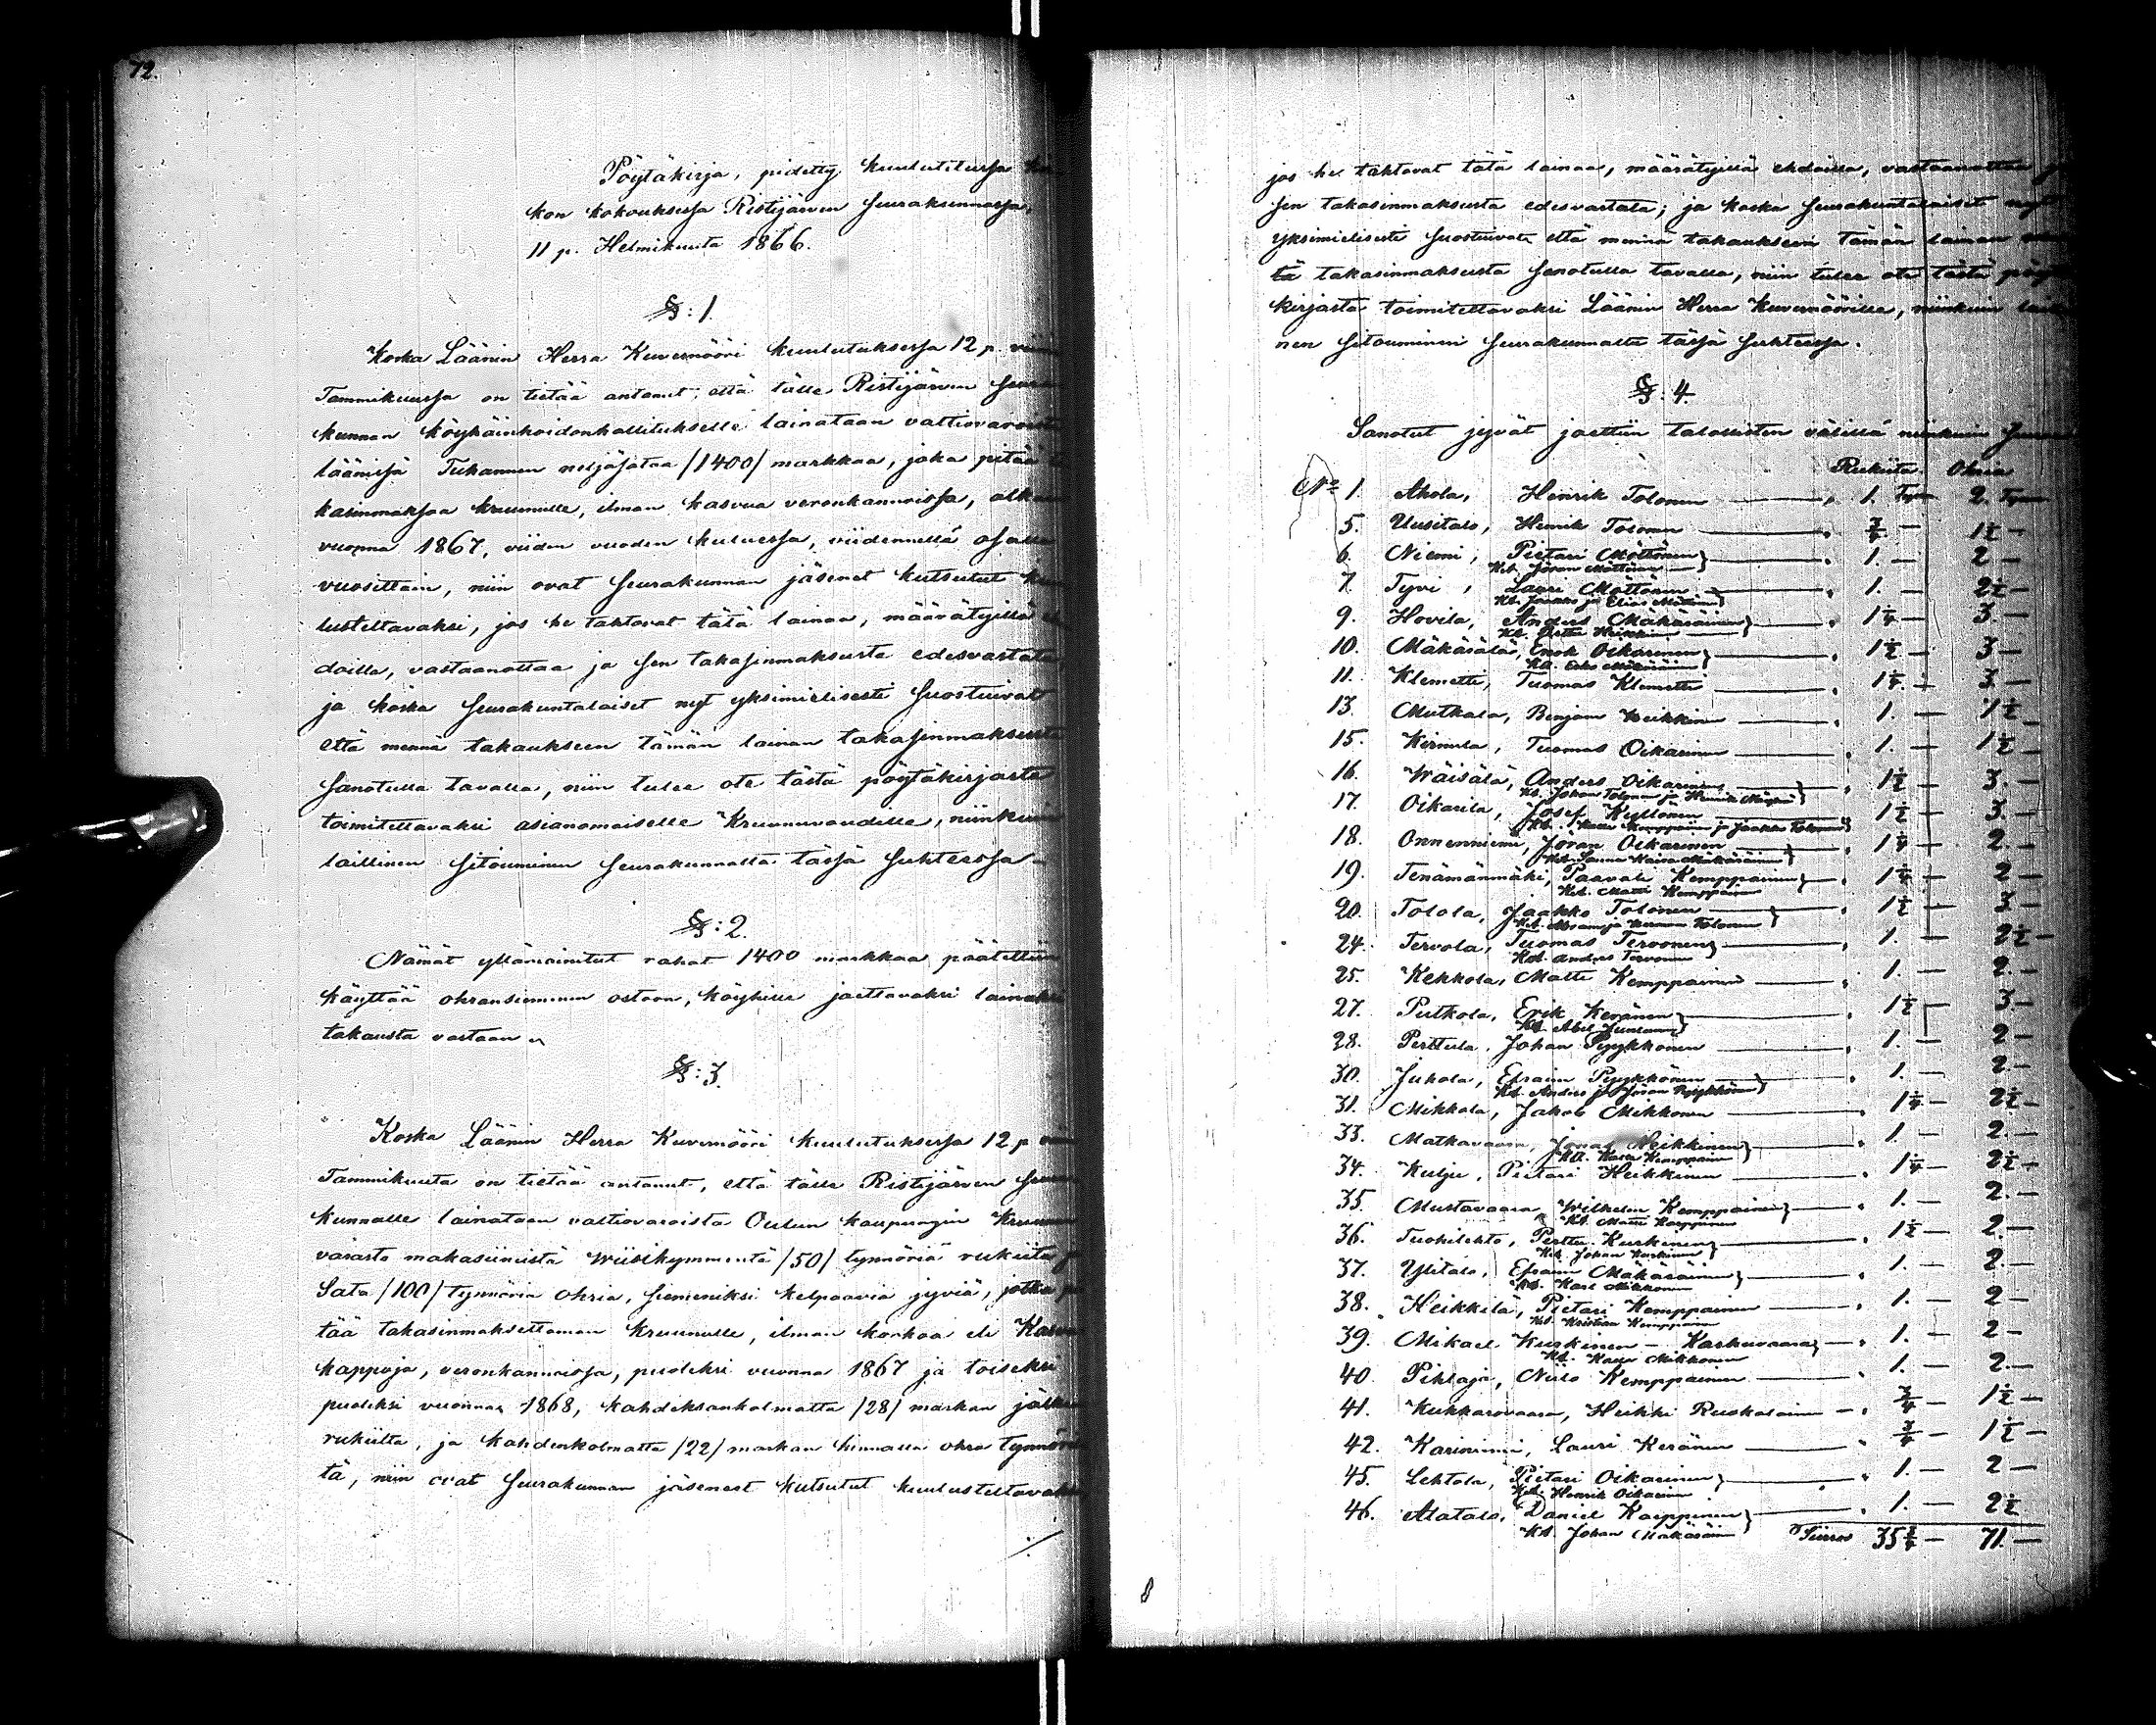 72.
Pöytäkirja, pidetty kuulutetussa
kon kokouksessa Ristijärven seurakunnassa,
11 p. Helmikuuta 1866.
§:1.
Koska Läänin Herra Kuvernööri kuulutuksessa 12 p.
Tammikuussa on tietää antanut, että tälle Ristijärven
kunnan köyhäinhoidonhallitukselle lainataan valtiovaroista
läänissä Tuhannen neljäsataa /1400/ markkaa, joka pitää
kasinmaksaa kruunulle, ilman kasvua veronkannoissa,
vuonna 1867, viiden vuoden kuluessa, viidennellä osalla
vuosittain, niin ovat seurakunnan jäsenet kutsutut
lusteltavaksi, jos he tahtovat tätä lainaa, määrätyillä
doilla, vastaanottaa ja sen takasinmaksusta edesvastata
ja koska seurakuntalaiset nyt yksimielisesti suostuivat
että mennä takaukseen tämän lainan takasinmaksusta
sanotulla tavalla, niin tulee ote tästä pöytäkirjasta
toimitettavaksi asianomaiselle Kruununvoudille, niinkuin
laillinen sitouminen seurakunnalta tässä suhteessa –
§:2.
Nämät yllämainitut rahat 1400 markkaa päätettiin
käyttää ohransiemenen ostoon, köyhille jaettavaksi lainaksi
takausta vastaan
§:3.
Koska Läänin Herra Kuvernööri kuulutuksessa 12 p
Tammikuuta on tietää antanut, että tälle Ristijärven
kunnalle lainataan valtiovaroista Oulun kaupungin Kruunun
varasto makasiinista Wiisikymmentä /50/ tynnöriä rukiita
Sata /100/ tynnöriä ohria, siemeniksi kelpaavia jyviä, jotka
tää takasinmaksettaman kruunulle, ilman korkoa eli
kappoja, veronkannoissa, puoleksi vuonna 1867 ja toiseksi
puoleksi vuonna 1868, kahdeksankolmatta /28/ markan
rukiilta, ja kahdenkolmatta /22/ markan hinnalla ohra
tä, niin ovat seurakunnan jäsenet kutsutut kuulusteltavaksi
jos he tahtovat tätä lainaa, määrätyillä ehdoilla, vastaanottaa
sen takasinmaksusta edesvastata; ja koska seurakuntalaiset
yksimielisesti suostuivat että mennä takaukseen tämän lainan
tä takasinmaksusta sanotulla tavalla, niin tulee ote tästä
kirjasta toimitettavaksi Läänin Herra Kuvernöörille, niinkuin
nen sitouminen seurakunnalta tässä suhteessa.
§:4.
Sanotut jyvät jaettiin talollisten välillä niinkuin
Rukiita. Ohria
No 1. Ahola, Henrik Tolonen 1. Tyn 2. Tyn
5. Uusitalo, Henrik Tolonen 3/4 – 1 1/2 –
6. Niemi, Pietari Möttönen 1. – 2 –
Kt. Jöran Möttönen
7. Tyvi, Lauri Möttönen 1. – 2 1/2 –
Kt. Jaakko ja Elias
9. Hovila, Anders Mäkäräinen 1 1/4 – 3. –
10. Mäkäsälä, Enok Oikarinen 1 1/2 – 3 –
11. Klemetti, Tuomas Klemetti 1 1/4 – 3 –
13. Mutkala, Benjam Heikkinen 1. – 1 1/2 –
15. Tuomas Oikarinen 1. – 1 1/2 –
16. Wäisälä, Anders Oikarinen 1 1/2 – 3. –
Kt. Johan Tolonen ja Henrik
17. Oikarila, Josef Kyllönen 1 1/2 – 3. –
Kt. Kemppainen ja Jaakko Tolonen
18. Onnenniemi, Jöran Oikarinen 1 1/4 – 2. –
19. Tenämänmäki, Paavali Kemppainen 1 1/4 – 2 –
Kt. Matti Kemppainen
20. Tolola, Jaakko Tolonen 1 1/2 – 3 –
24. Tervola, Tuomas Tervonen 1. – 2 1/2 –
Kt. Anders Tervonen
25. Kekkola, Matti Kemppainen 1. – 2. –
27. Putkola, Erik Keränen 1 1/2 – 3. –
Kt. Abel Juntunen
28. Perttula, Johan Pyykkönen 1. – 2 –
30. Juhola, Efraim Pyykkönen 1. – 2. –
Kt. Anders ja Jöran Pyykkönen
31. Mikkola, Jakob Mikkonen 1 1/4 – 2 1/2 –
33. Matkavaara, Jonas Heikkinen 1. – 2. –
Kt. Kalle Kemppainen
34. Kulju, Pietari Heikkinen 1 1/4 – 2 1/2 –
35. Mustavaara, Wilhelm Kemppainen 1. – 2. –
Kt. Matti
36. Tuohilehto, Perttu Kurkinen 1 1/2 – 2. –
Kt. Johan Kurkinen
37. Ylitalo, Efraim Mäkäräinen 1. – 2. –
Kt. Karl Mikkonen
38. Heikkilä, Pietari Kemppainen 1. – 2 –
Kt. Kemppainen
39. Mikael Kurkinen – Karhuvaara 1. – 2 –
Kt. Kalle Mikkonen
40. Pihlaja, Niilo Kemppainen 1. – 2. –
41. Kukkarovaara, Heikki 3/4 – 1 1/2 –
42. Kariniemi, Lauri Keränen 3/4 – 1 1/2 –
45. Lehtola, Pietari Oikarinen 1. – 2 –
Kt. Henrik Oikarinen
46. Alatalo, Daniel Karppinen 1. – 2 1/2
Kt. Johan Mäkäräinen Siirros 35 3/4 – 71. –